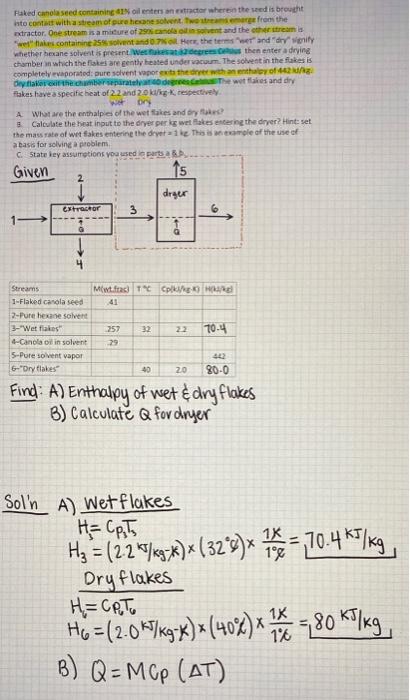 Flaked canola seed containing 41% oil enters an extractor wherein the seed is brought
into contact with a stream of pure hexane solvent. Two streams emerge from the
extractor. One stream is a mixture of 29% canola oil in solvent and the other stream is
"wet" flakes containing 25% solvent and 0.7% oil. Here, the terms "wet" and "dry" signify
whether hexane solvent is present. Wet flakes at 32 degrees Celsius then enter a drying
chamber in which the flakes are gently heated under vacuum. The solvent in the flakes is
completely evaporated; pure solvent vapor exits the dryer with an enthalpy of 442 kJ/kg.
Dry flakes exit the chamber separately at 40 degrees Celsius. The wet flakes and dry
flakes have a specific heat of 2.2 and 2.0 kJ/kg-K, respectively.
wet Dry
A. What are the enthalpies of the wet flakes and dry flakes?
B. Calculate the heat input to the dryer per kg wet flakes entering the dryer? Hint: set
the mass rate of wet flakes entering the dryer = 1 kg. This is an example of the use of
a basis for solving a problem.
C. State key assumptions you used in parts a & b.
Given
2
5
dryer
extractor
3
6
1
Q
Q
4
Streams M(wt.frac) T °C Cp(kJ/kg-K) H(kJ/kg)
1-Flaked canola seed .41
2-Pure hexane solvent
3-"Wet flakes" .257 32 2.2 70.4
4-Canola oil in solvent .29
5-Pure solvent vapor 442
6-"Dry flakes" 40 2.0 80.0
Find: A) Enthalpy of wet & dry flakes
B) Calculate Q for dryer
Sol'n A) Wet flakes
H₃ = Cp₃T₃
H₃ = (2.2 kJ/kg-K) × (32°C) × 1K/1°C = 70.4 kJ/kg
Dry flakes
H₆ = CpT₆
H₆ = (2.0 kJ/kg-K) × (40°C) × 1K/1°C = 80 kJ/kg
B) Q = MCp (ΔT)